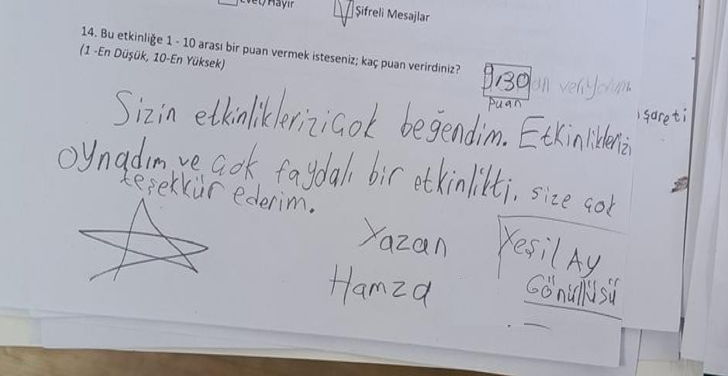 Evet/Hayır
Şifreli Mesajlar
14. Bu etkinliğe 1 - 10 arası bir puan vermek isteseniz; kaç puan verirdiniz?
(1 -En Düşük, 10-En Yüksek)
9,30 veriyorum
puan
işareti
Sizin etkinliklerinizi çok beğendim. Etkinliklerinizi
oynadım ve çok faydalı bir etkinlikti, size çok
teşekkür ederim.
Yazan
Hamza
Yeşil Ay
Gönüllüsü